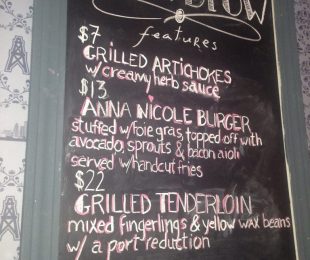 BROW
features
$7
GRILLED ARTICHOKES
w/creamy herb sauce
$13
ANNA NICOLE BURGER
stuffed w/foie gras topped off with
avocado, sprouts & bacon aioli
served w/handcut fries
$22
GRILLED TENDERLOIN
mixed fingerlings & yellow wax beans
w/ a port reduction